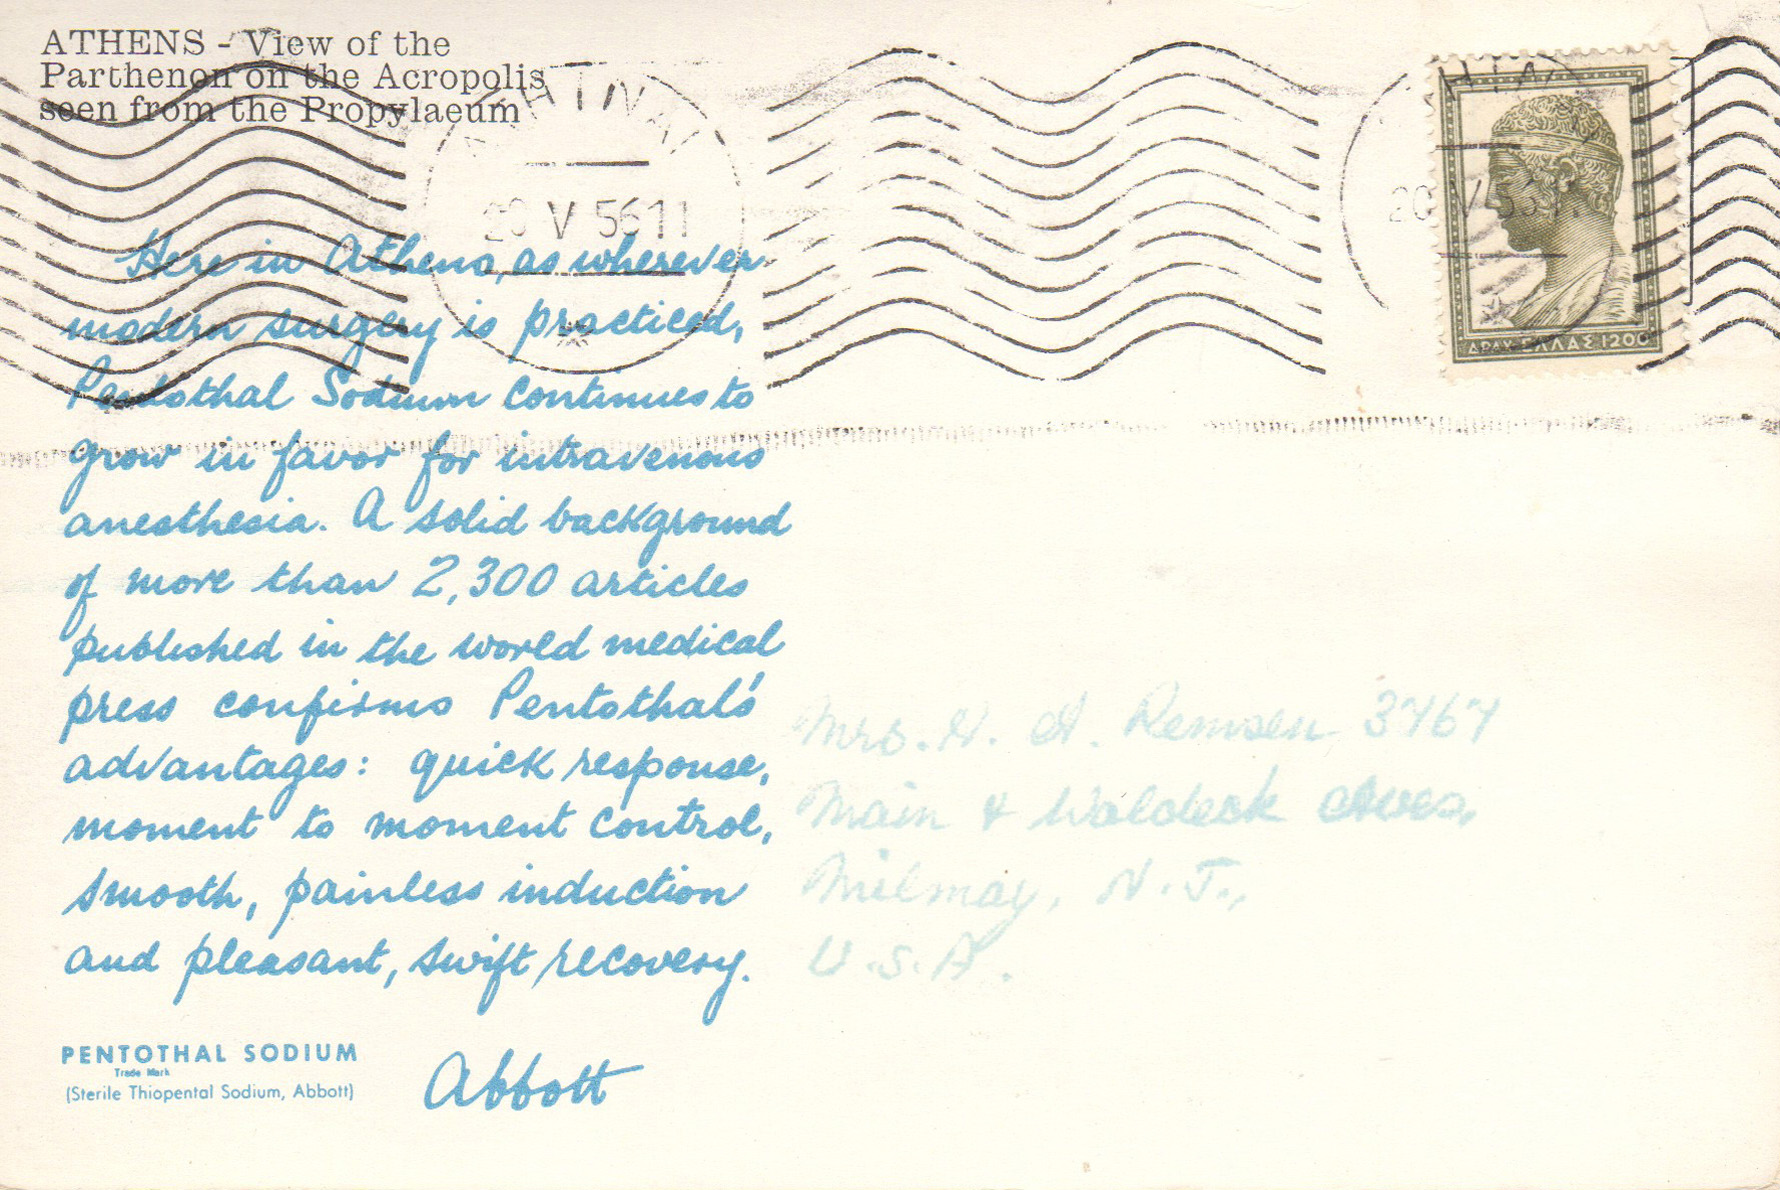 ATHENS - View of the
Parthenon on the Acropolis
seen from the Propylaeum
20 V 56 11
20 V
ΔΡΑΧ ΕΛΛΑΣ 1200
Here in Athens, as wherever
modern surgery is practiced,
Pentothal Sodium continues to
grow in favor for intravenous
anesthesia. A solid background
of more than 2,300 articles
published in the world medical
press confirms Pentothal's
advantages: quick response,
moment to moment control,
smooth, painless induction
and pleasant, swift recovery.
PENTOTHAL SODIUM
Trade Mark
(Sterile Thiopental Sodium, Abbott)
Abbott
Mrs. H. A. Remsen 3767
Main & Waldeck Aves.
Milmay, N.J.,
U.S.A.